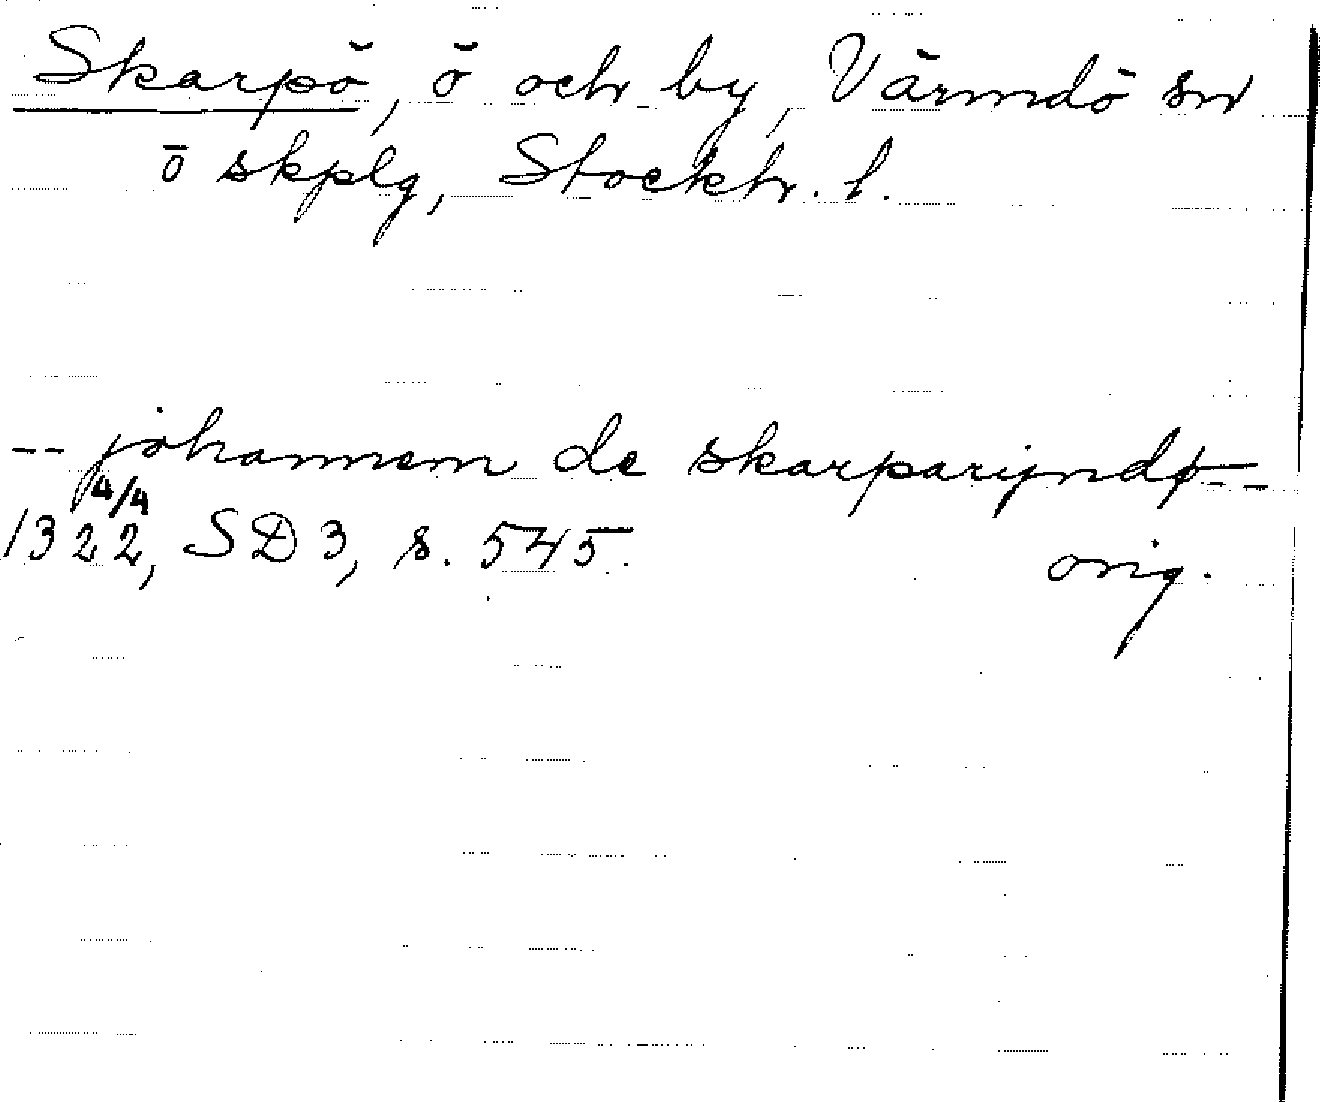 Skarpö, ö och by, Värmdö sn
ö skplg, Stockh. l.
-- johannem de skarparijndø --
4/4
1322, SD 3, s. 545.
orig.